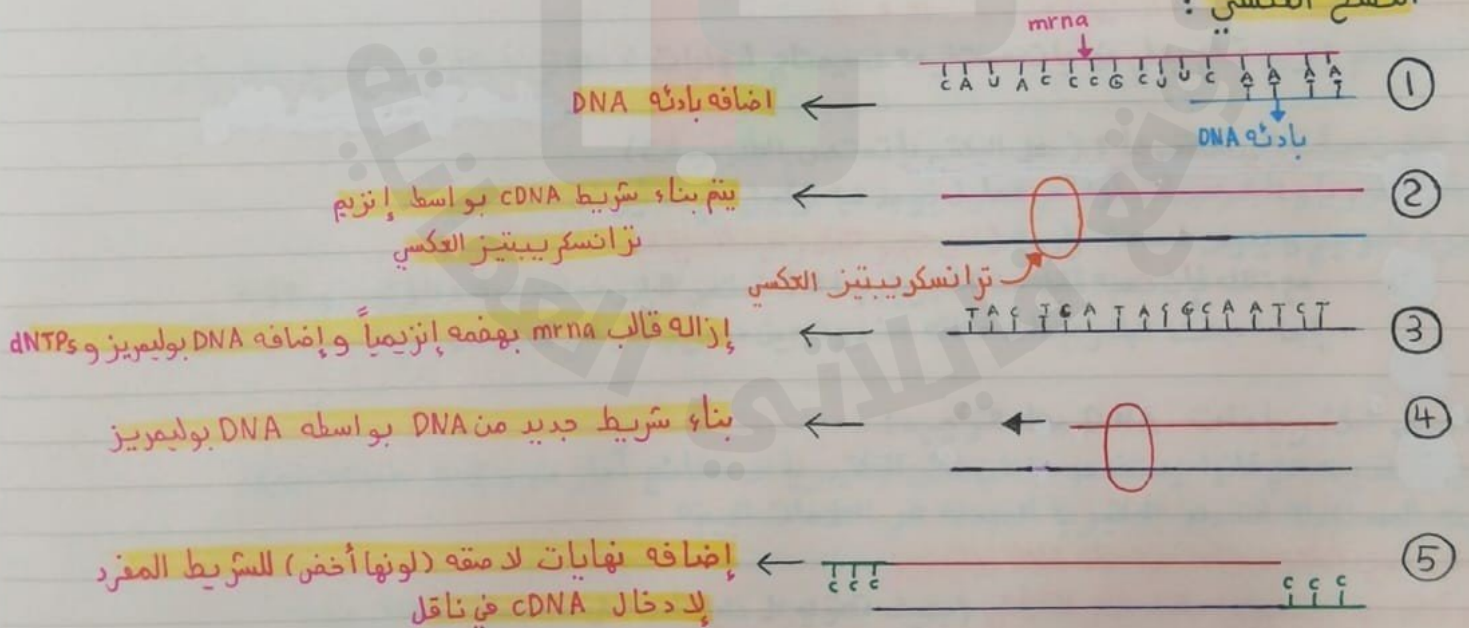 النسخ العكسي :
mrna
C A U A C C C G C U U C A A A A
T T T T
①
اضافه بادئه DNA
بادئه DNA
②
يتم بناء شريط cDNA بواسط إنزيم
ترانسكريبتيز العكسي
ترانسكريبتيز العكسي
③
إزاله قالب mrna بهضمه إنزيمياً و إضافه DNA بوليمريز و dNTPs
④
بناء شريط جديد من DNA بواسطه DNA بوليمريز
⑤
إضافه نهايات لاصقه (لونها أخضر) للشريط المفرد
لادخال cDNA في ناقل
C C C
C C C